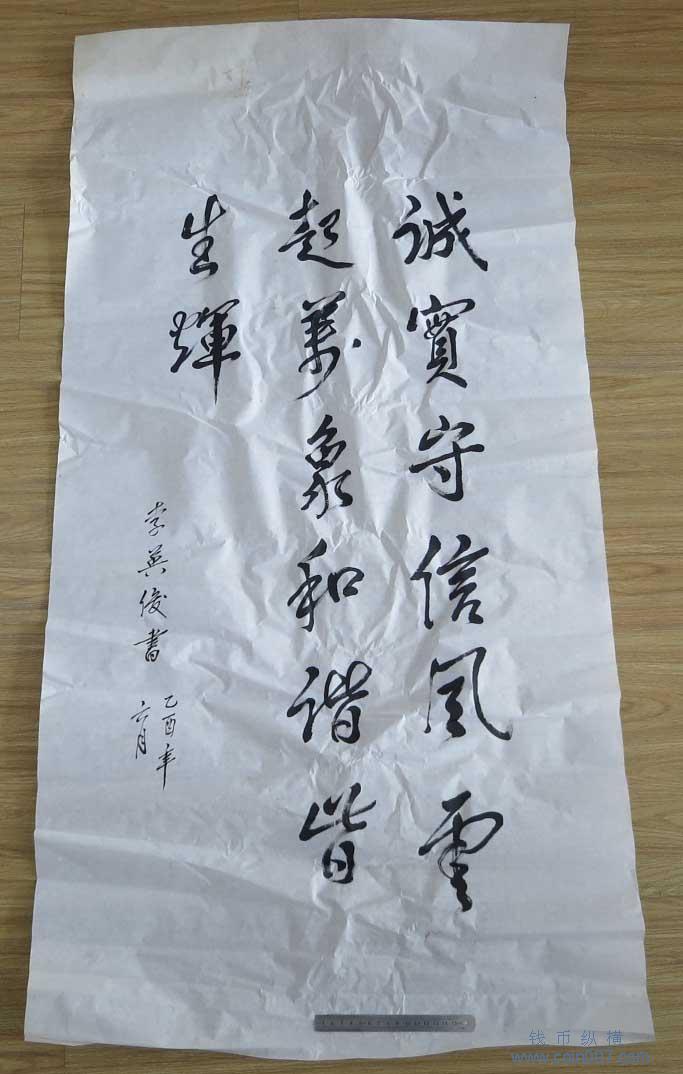 誠實守信風雲
起萬象和諧皆
生輝
李英俊書
乙酉年
六月
钱币纵横
www.coin007.com